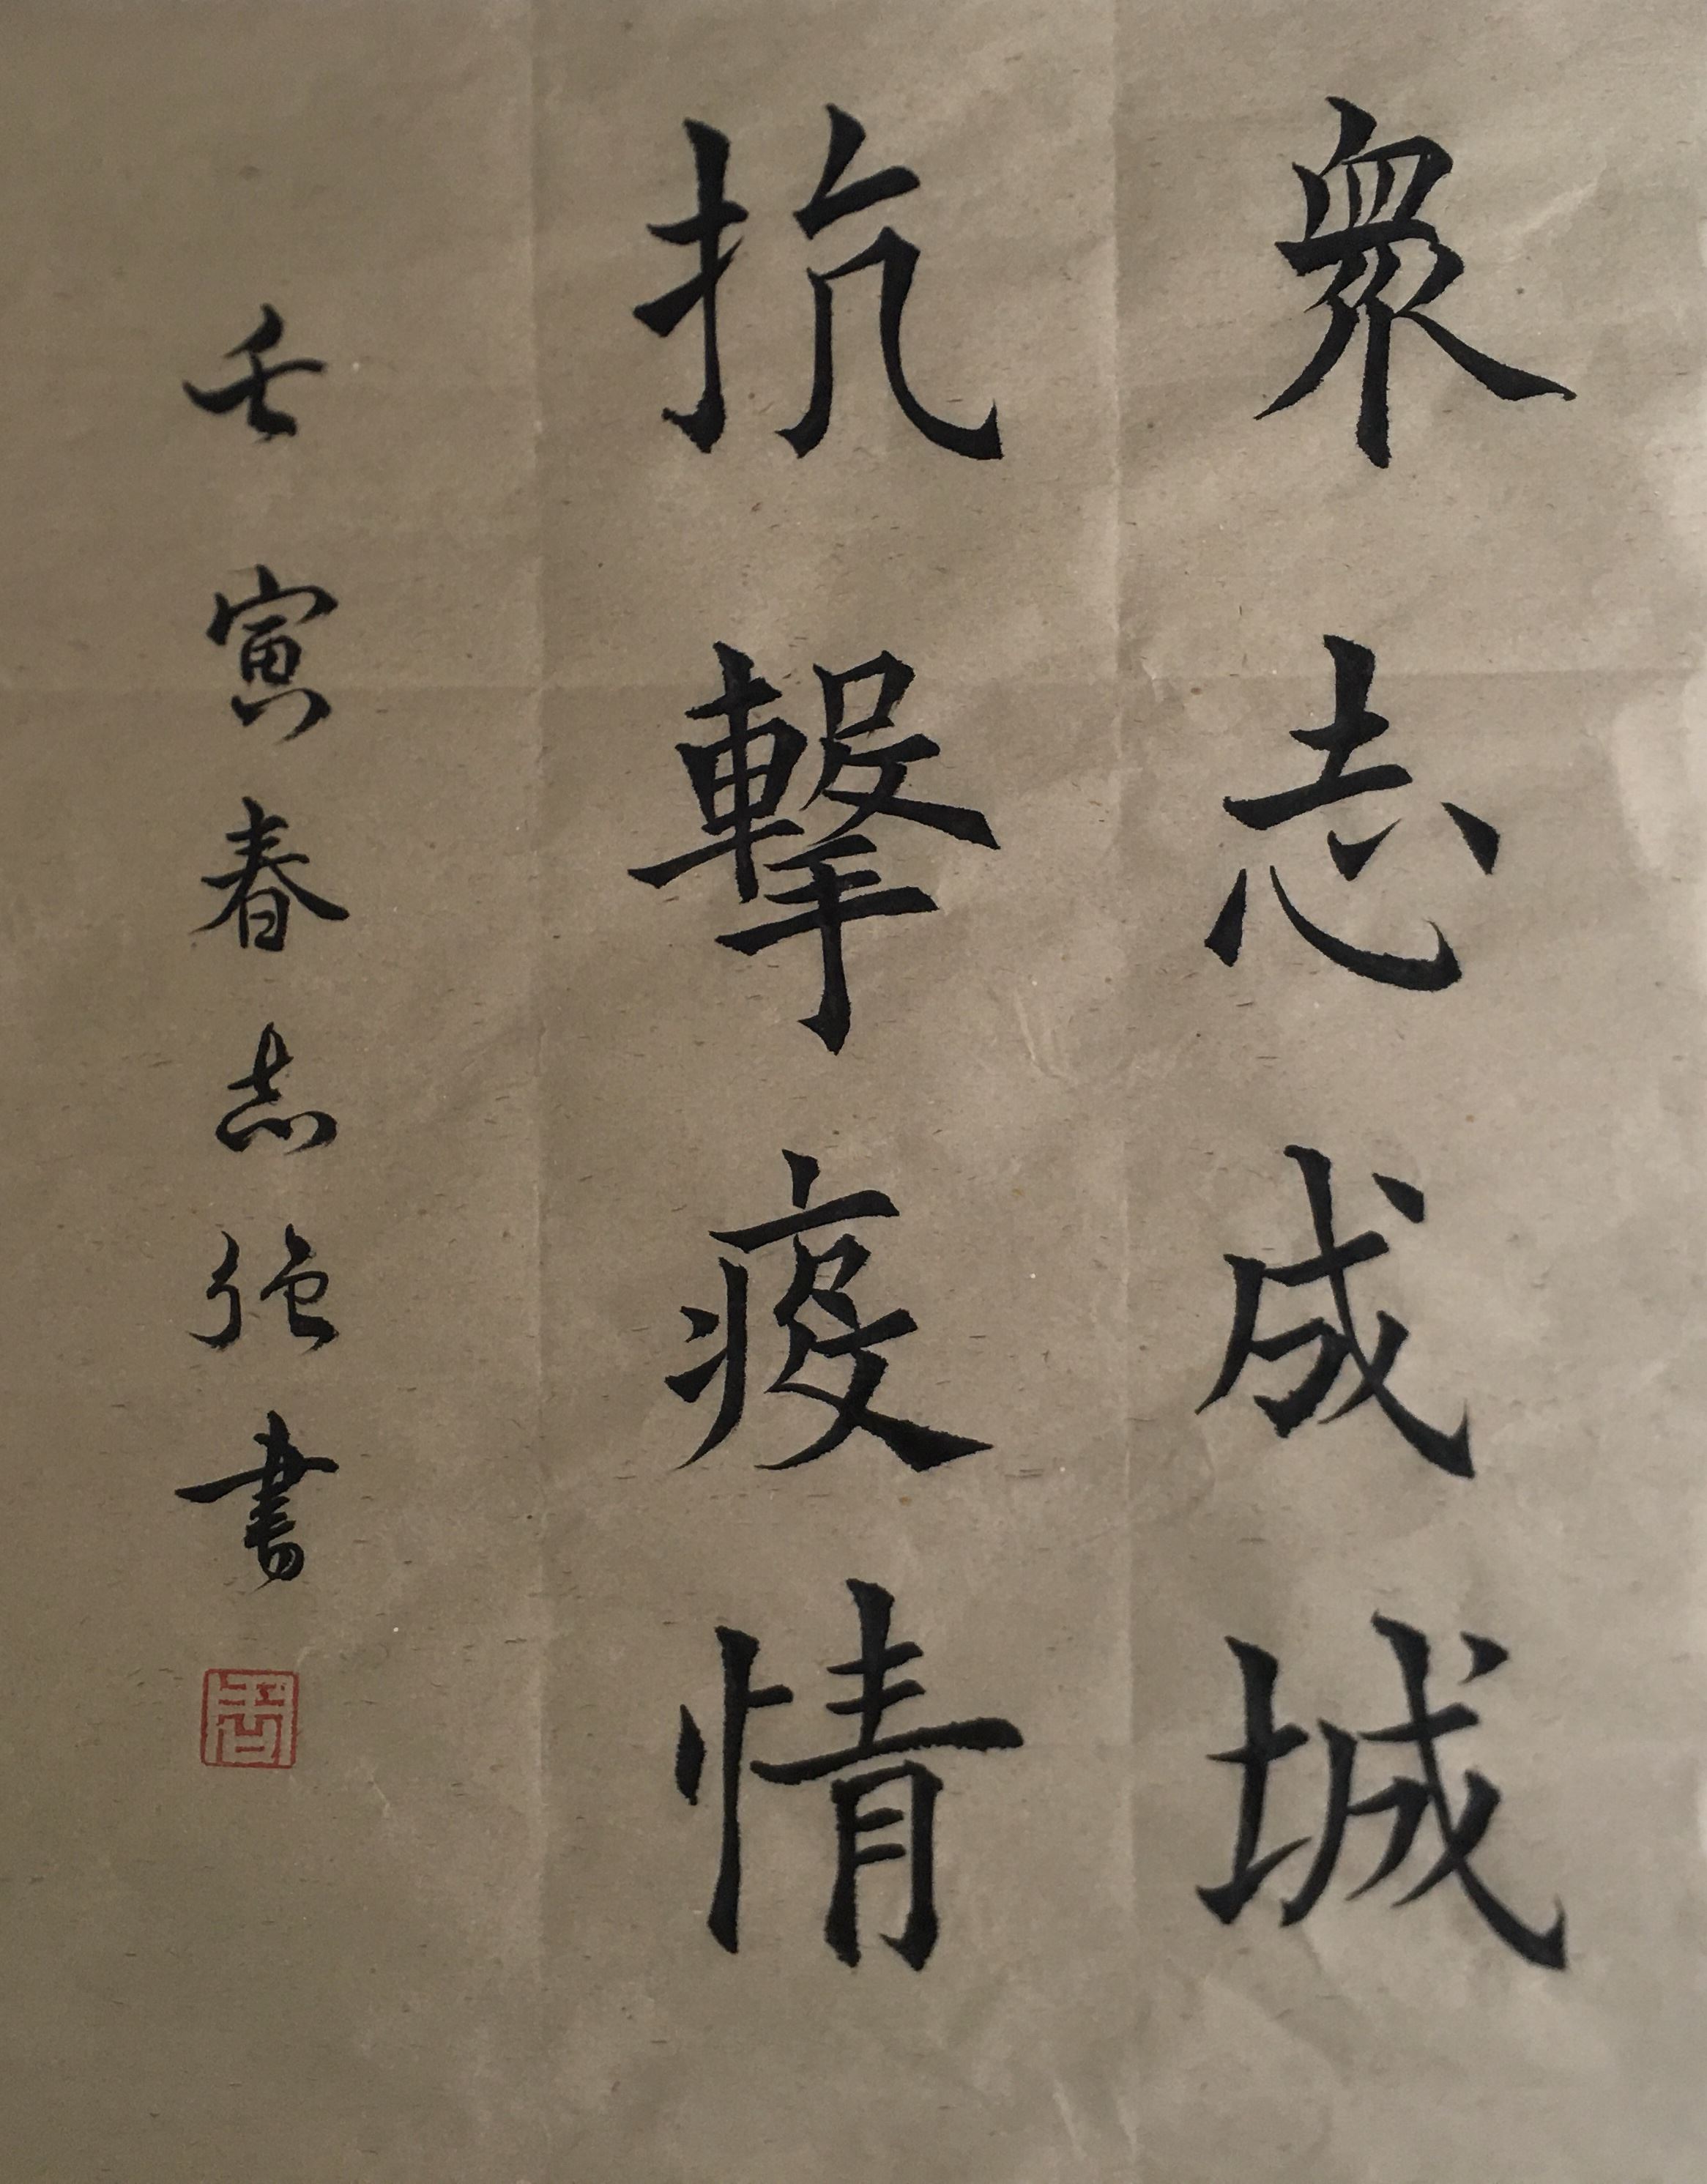 眾志成城
抗擊疫情
壬寅春志強書